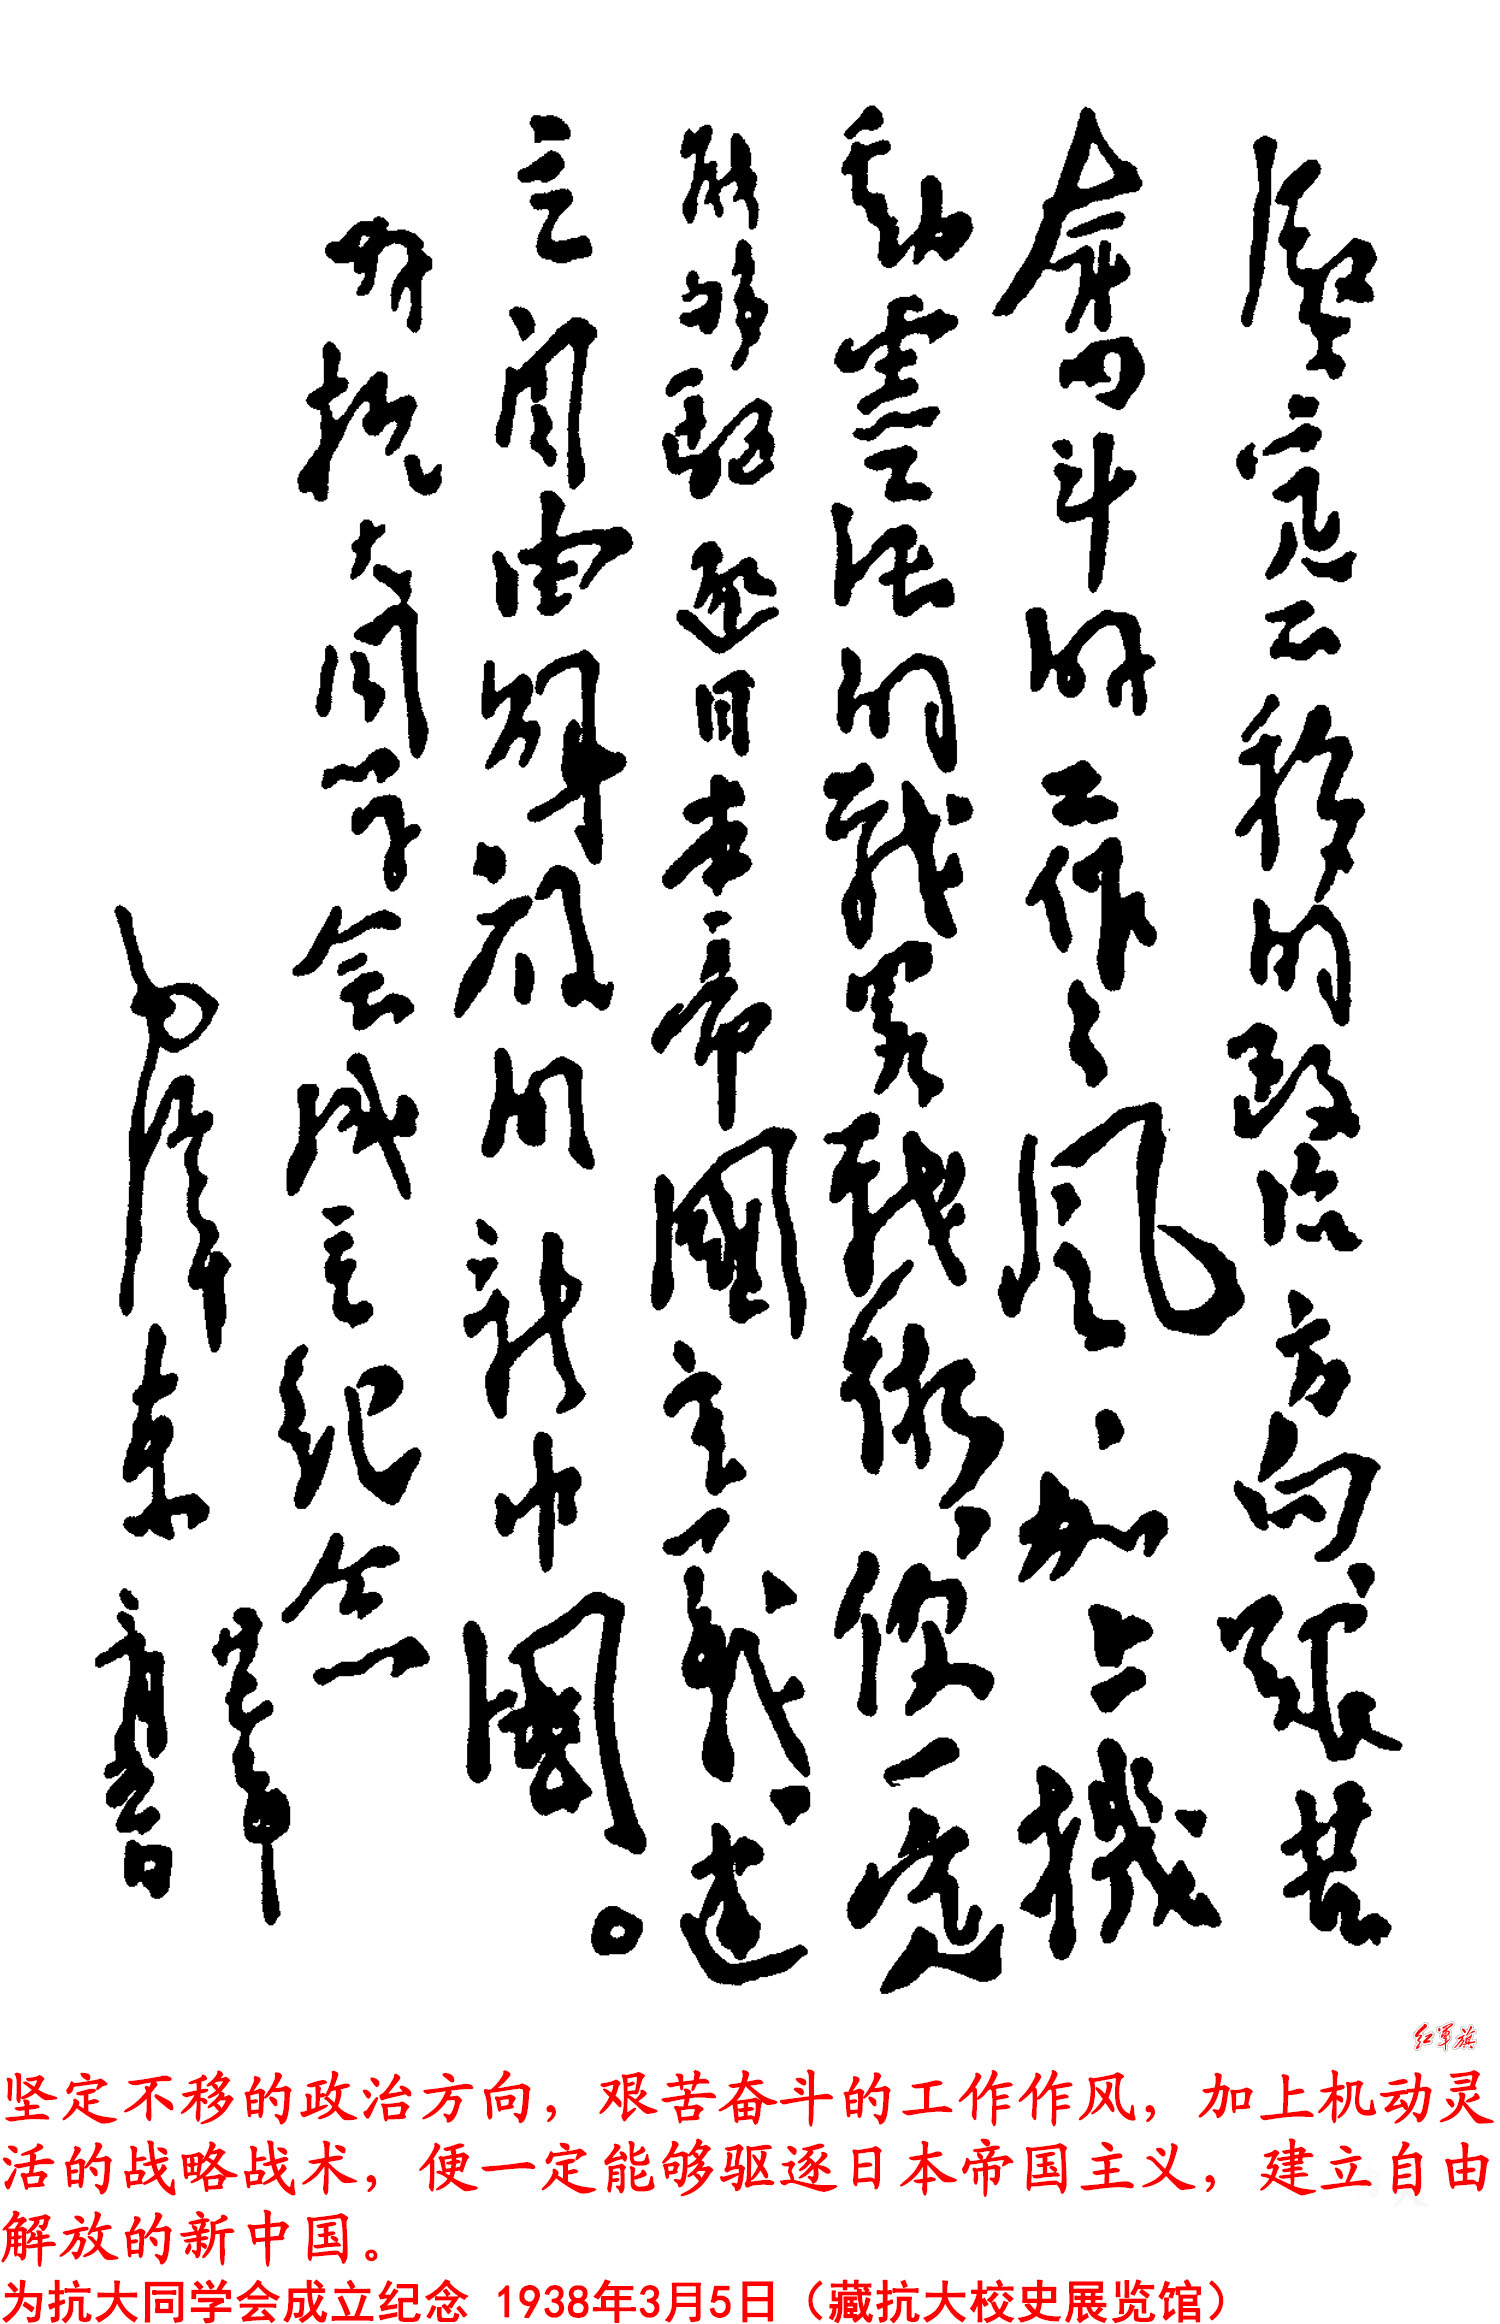 堅定不移的政治方向，艰苦
奮斗的工作作风，加上機
動灵活的战略战術，便一定
能够驱逐日本帝國主义，建
立自由解放的新中國。
为抗大同学会成立纪念
毛泽东
廿七年
三月五日
红军旗
坚定不移的政治方向，艰苦奋斗的工作作风，加上机动灵
活的战略战术，便一定能够驱逐日本帝国主义，建立自由
解放的新中国。
为抗大同学会成立纪念 1938年3月5日（藏抗大校史展览馆）